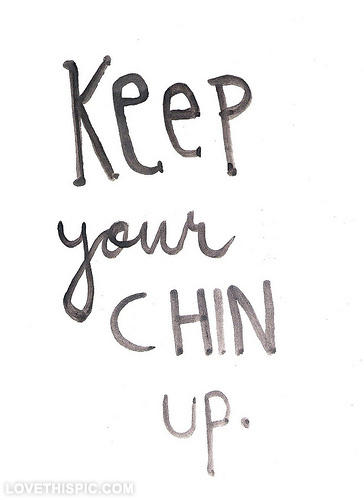 Keep
your
CHIN
up.
LOVETHISPIC.COM